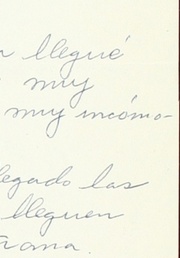 llegué
muy
muy incómo-
legado las
lleguen
ñana.